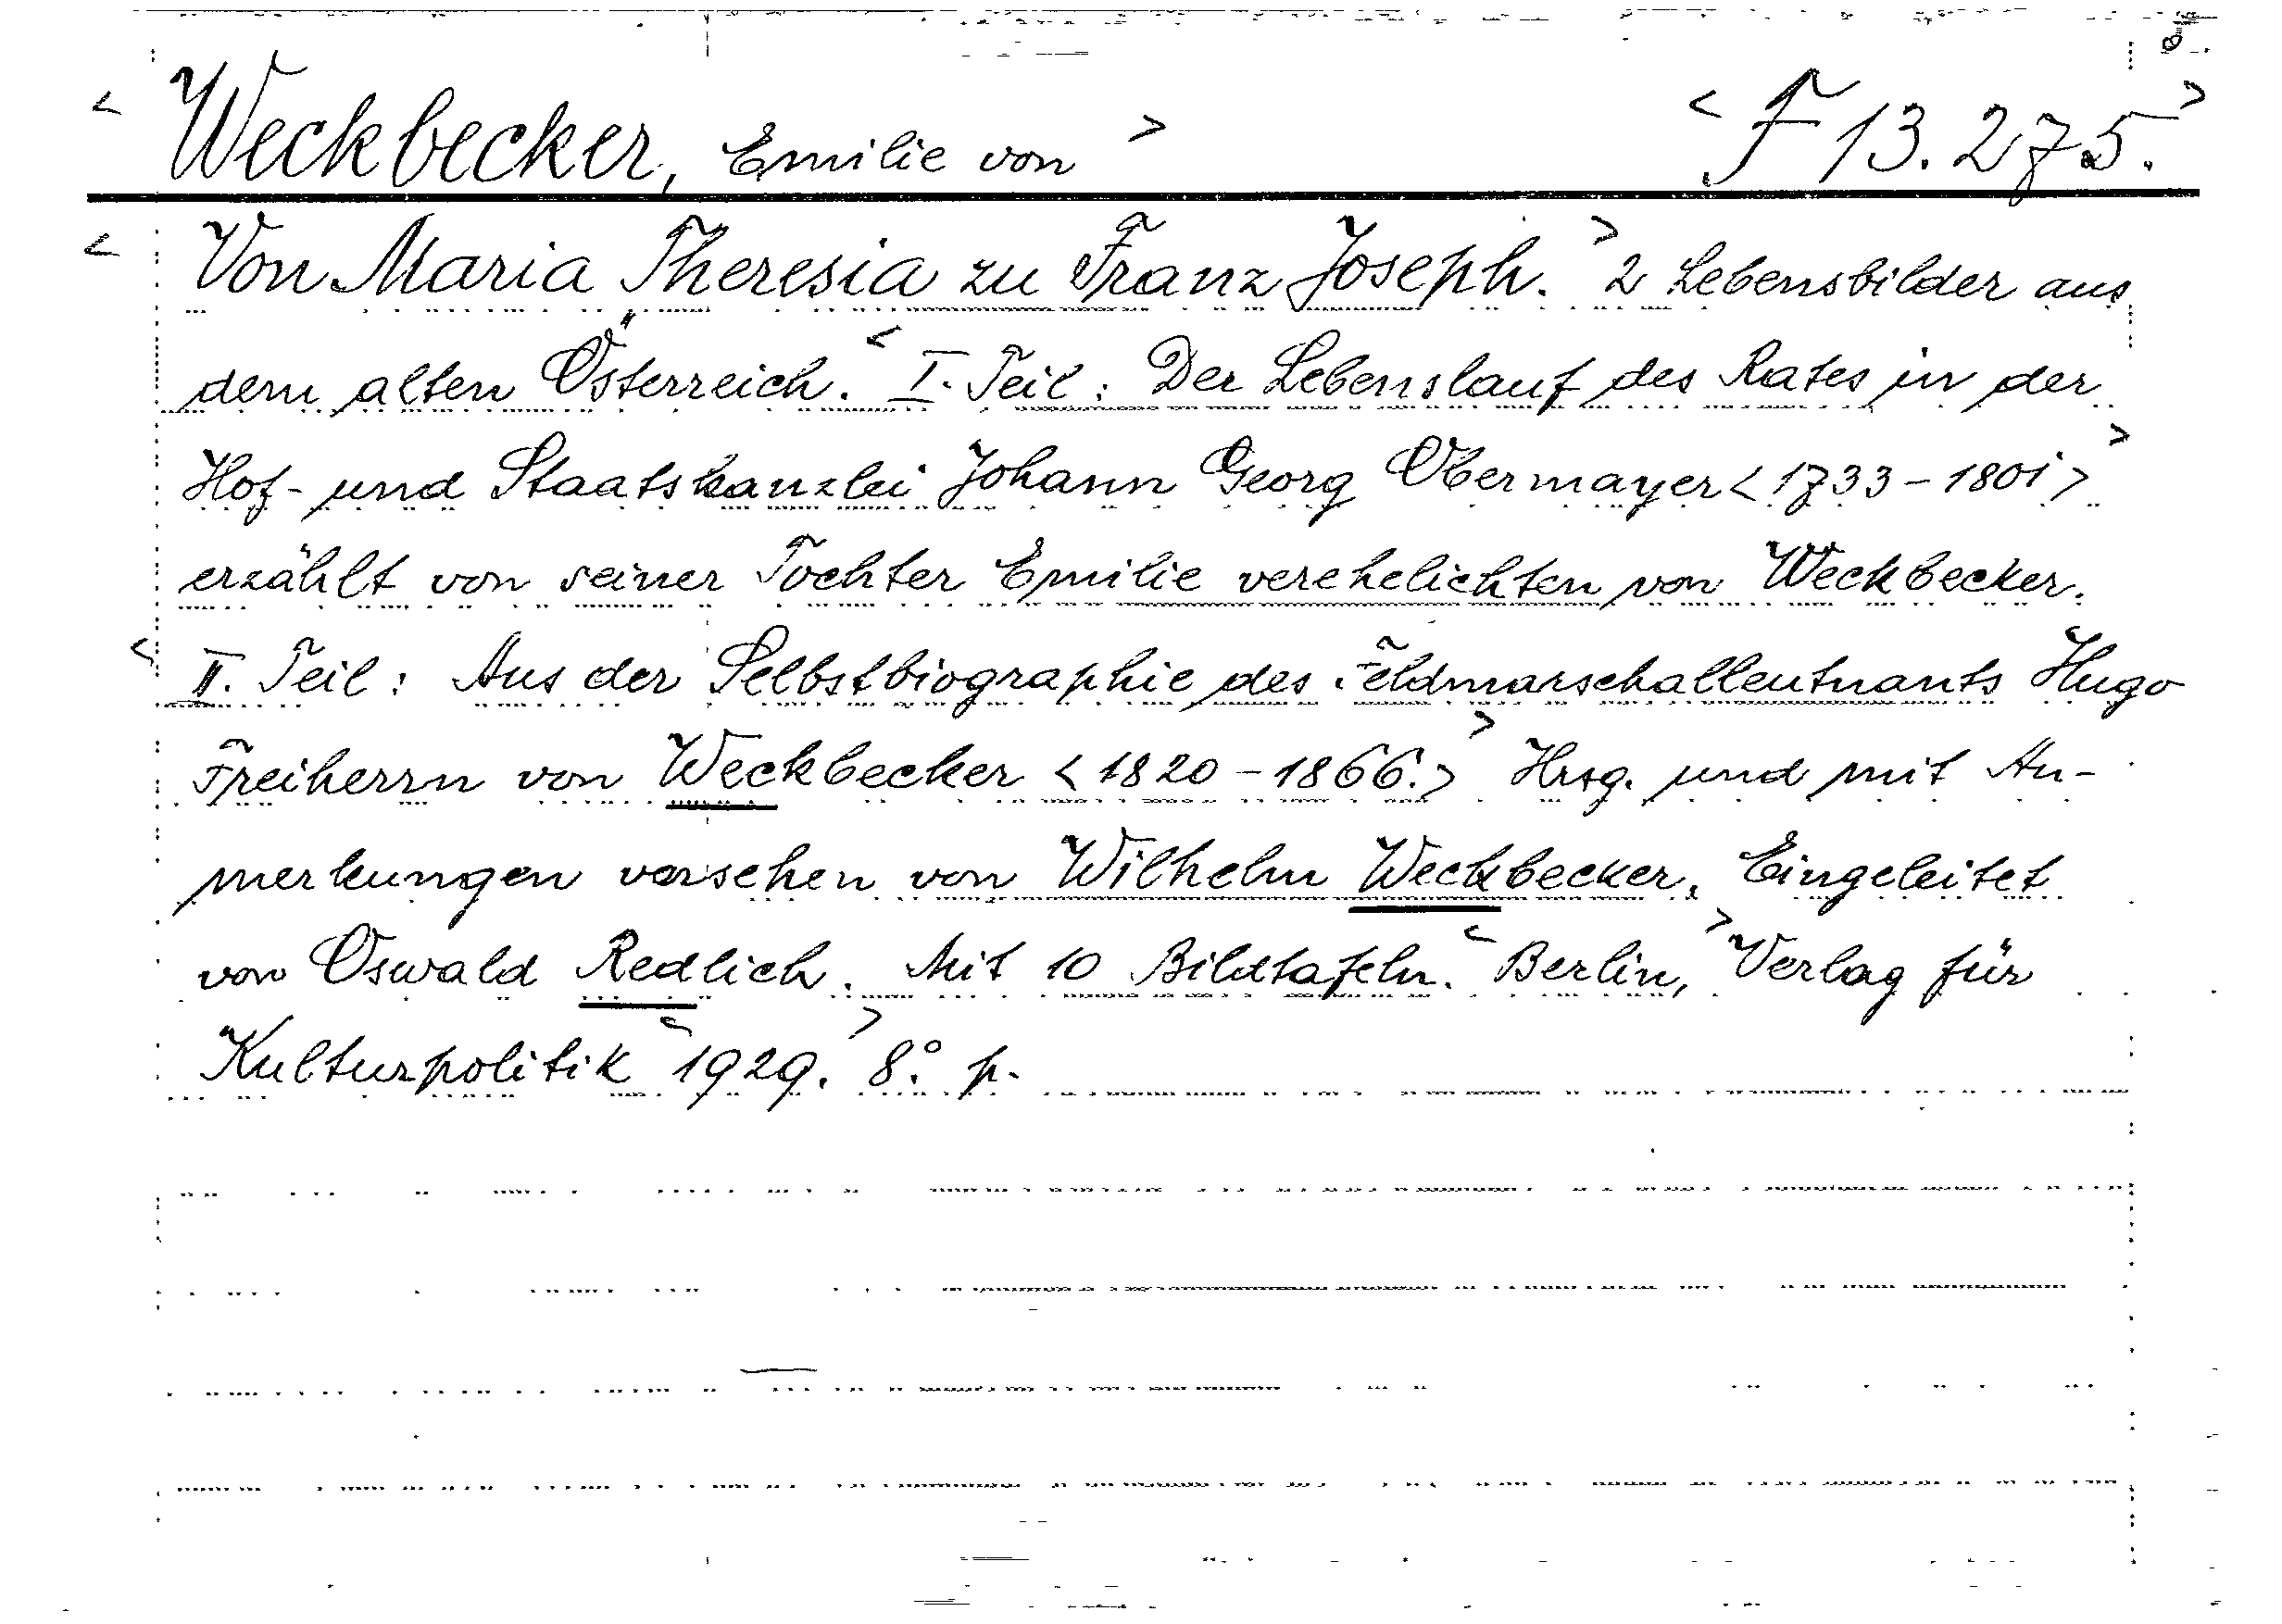 < Weckbecker, Emilie von > < F 13.275. >
< Von Maria Theresia zu Franz Joseph. > 2 Lebensbilder aus
dem alten Österreich. < I. Teil: Der Lebenslauf des Rates in der
Hof- und Staatskanzlei Johann Georg Obermayer <1733-1801> >
erzählt von seiner Tochter Emilie verehelichten von Weckbecker.
< II. Teil: Aus der Selbstbiographie des Feldmarschalleutnants Hugo
Freiherrn von Weckbecker <1820-1866.> > Hrsg. und mit An-
merkungen versehen von Wilhelm Weckbecker, Eingeleitet
von Oswald Redlich. Mit 10 Bildtafeln. < Berlin, > Verlag für
Kulturpolitik < 1929. > 8.° p.